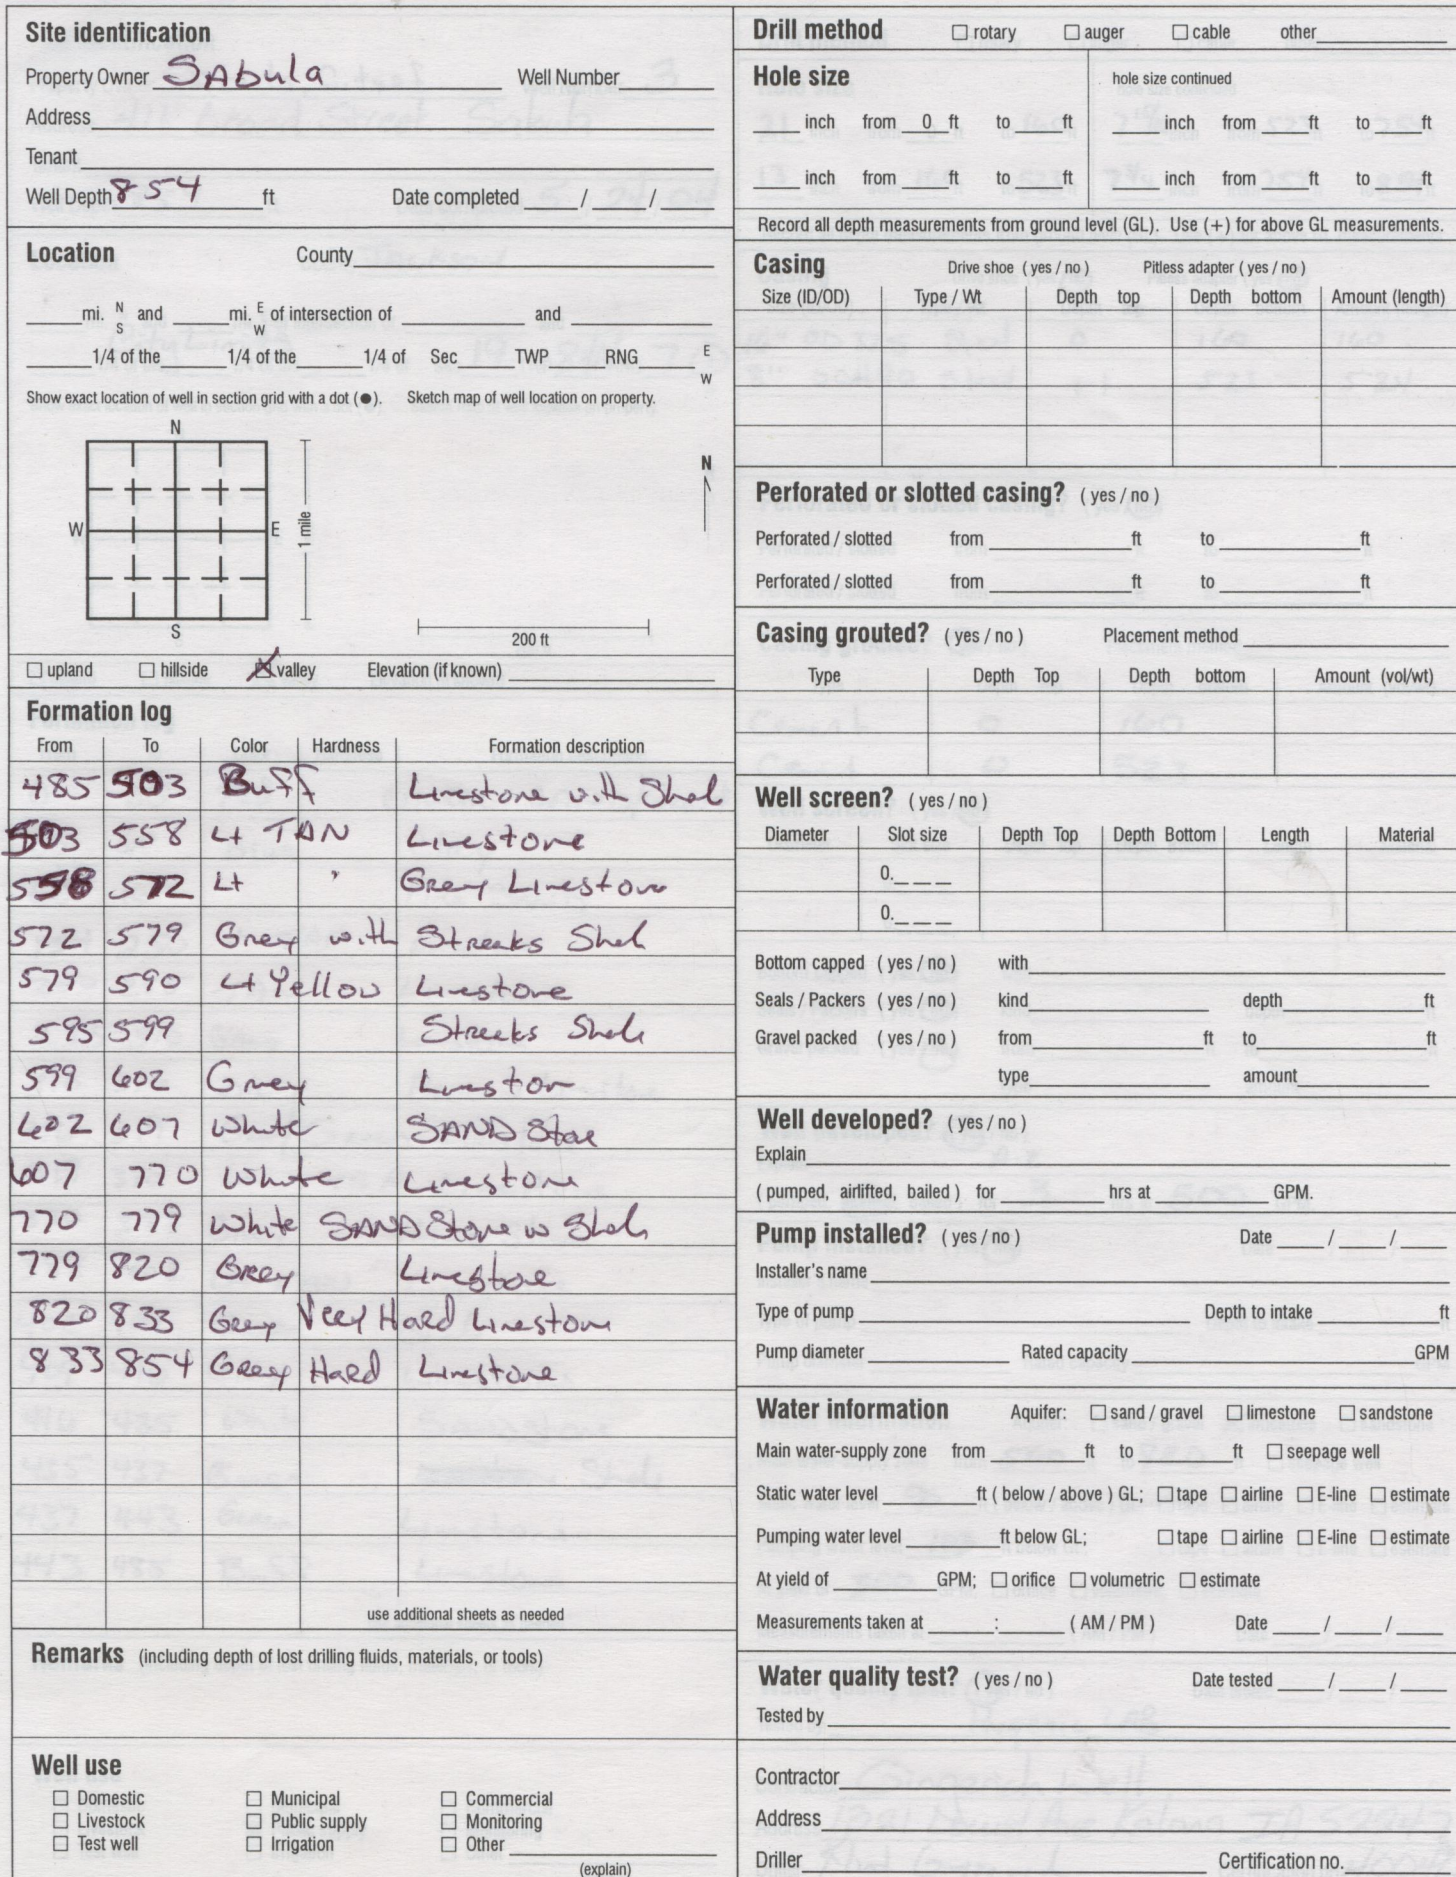 Site identification
Property Owner SAbula Well Number
Address
Tenant
Well Depth 854 ft Date completed / /
Location County
mi. N S and mi. E W of intersection of and
1/4 of the 1/4 of the 1/4 of Sec TWP RNG E W
Show exact location of well in section grid with a dot (●). Sketch map of well location on property.
N
N
W E 1 mile
S
200 ft
☐ upland ☐ hillside ☒ valley Elevation (if known)
Formation log
From To Color Hardness Formation description
485 503 Buff Limestone with Shal
503 558 Lt TAN Limestone
558 572 Lt " Grey Limestone
572 579 Grey with Streaks Shal
579 590 Lt Yellow Limestone
595 599 Streaks Shal
599 602 Grey Limeston
602 607 White SAND Stone
607 770 White Limestone
770 779 White SAND Stone w Shal
779 820 Grey Limestone
820 833 Grey Very Hard Limestone
833 854 Grey Hard Limestone
use additional sheets as needed
Remarks (including depth of lost drilling fluids, materials, or tools)
Well use
☐ Domestic ☐ Municipal ☐ Commercial
☐ Livestock ☐ Public supply ☐ Monitoring
☐ Test well ☐ Irrigation ☐ Other
(explain)
Drill method ☐ rotary ☐ auger ☐ cable other
Hole size hole size continued
inch from 0 ft to ft inch from ft to ft
inch from ft to ft inch from ft to ft
Record all depth measurements from ground level (GL). Use (+) for above GL measurements.
Casing Drive shoe ( yes / no ) Pitless adapter ( yes / no )
Size (ID/OD) Type / Wt Depth top Depth bottom Amount (length)
Perforated or slotted casing? ( yes / no )
Perforated / slotted from ft to ft
Perforated / slotted from ft to ft
Casing grouted? ( yes / no ) Placement method
Type Depth Top Depth bottom Amount (vol/wt)
Well screen? ( yes / no )
Diameter Slot size Depth Top Depth Bottom Length Material
0._ _ _
0._ _ _
Bottom capped ( yes / no ) with
Seals / Packers ( yes / no ) kind depth ft
Gravel packed ( yes / no ) from ft to ft
type amount
Well developed? ( yes / no )
Explain
( pumped, airlifted, bailed ) for hrs at GPM.
Pump installed? ( yes / no ) Date / /
Installer's name
Type of pump Depth to intake ft
Pump diameter Rated capacity GPM
Water information Aquifer: ☐ sand / gravel ☐ limestone ☐ sandstone
Main water-supply zone from ft to ft ☐ seepage well
Static water level ft ( below / above ) GL; ☐ tape ☐ airline ☐ E-line ☐ estimate
Pumping water level ft below GL; ☐ tape ☐ airline ☐ E-line ☐ estimate
At yield of GPM; ☐ orifice ☐ volumetric ☐ estimate
Measurements taken at : ( AM / PM ) Date / /
Water quality test? ( yes / no ) Date tested / /
Tested by
Contractor
Address
Driller Certification no.